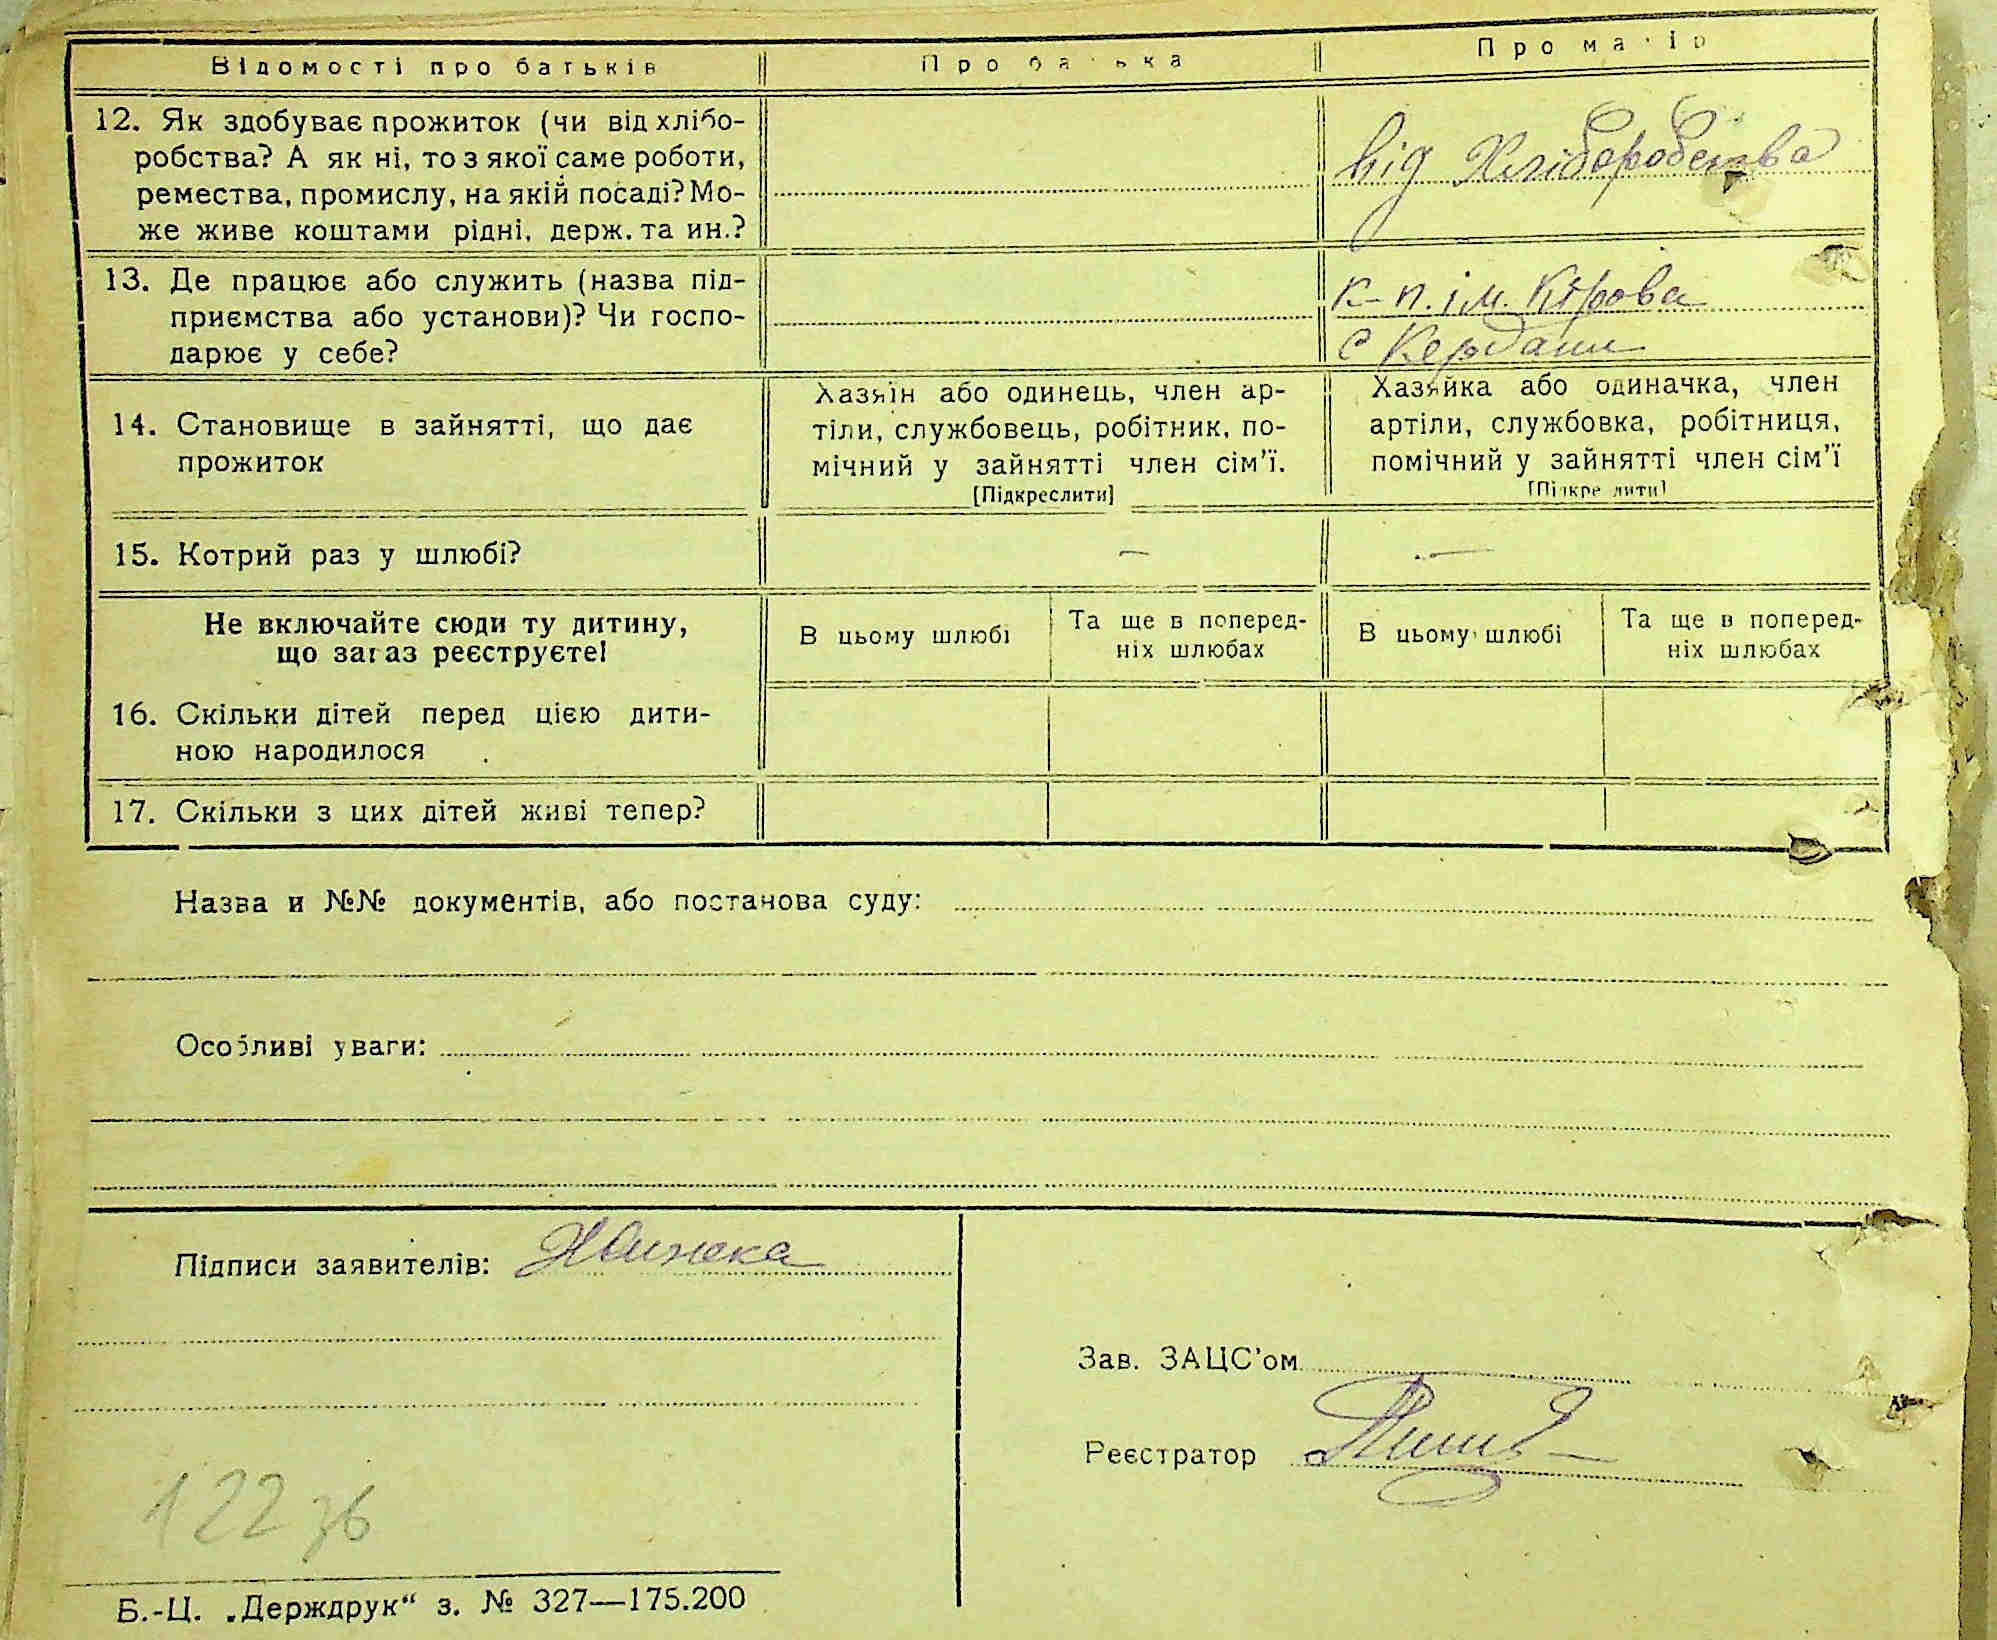 Відомості про батьків
Про батька
Про матір
12. Як здобуває прожиток (чи від хлібо-
робства? А як ні, то з якої саме роботи,
ремества, промислу, на якій посаді? Мо-
же живе коштами рідні, держ. та ин.?
від Хліборобства
13. Де працює або служить (назва під-
приємства або установи)? Чи госпо-
дарює у себе?
к-п. ім. Кірова
с Кердани
14. Становище в зайнятті, що дає
прожиток
Хазяїн або одинець, член ар-
тіли, службовець, робітник, по-
мічний у зайнятті член сім'ї.
[Підкреслити]
Хазяйка або одиначка, член
артіли, службовка, робітниця,
помічний у зайнятті член сім'ї
[Підкреслити]
15. Котрий раз у шлюбі?
—
—
Не включайте сюди ту дитину,
що зараз реєструєте!
В цьому шлюбі
Та ще в поперед-
ніх шлюбах
В цьому шлюбі
Та ще в поперед-
ніх шлюбах
16. Скільки дітей перед цією дити-
ною народилося
17. Скільки з цих дітей живі тепер?
Назва и №№ документів, або постанова суду:
Особливі уваги:
Підписи заявителів:
Зав. ЗАЦС'ом
Реєстратор
122 зб
Б.-Ц. „Держдрук“ з. № 327—175.200